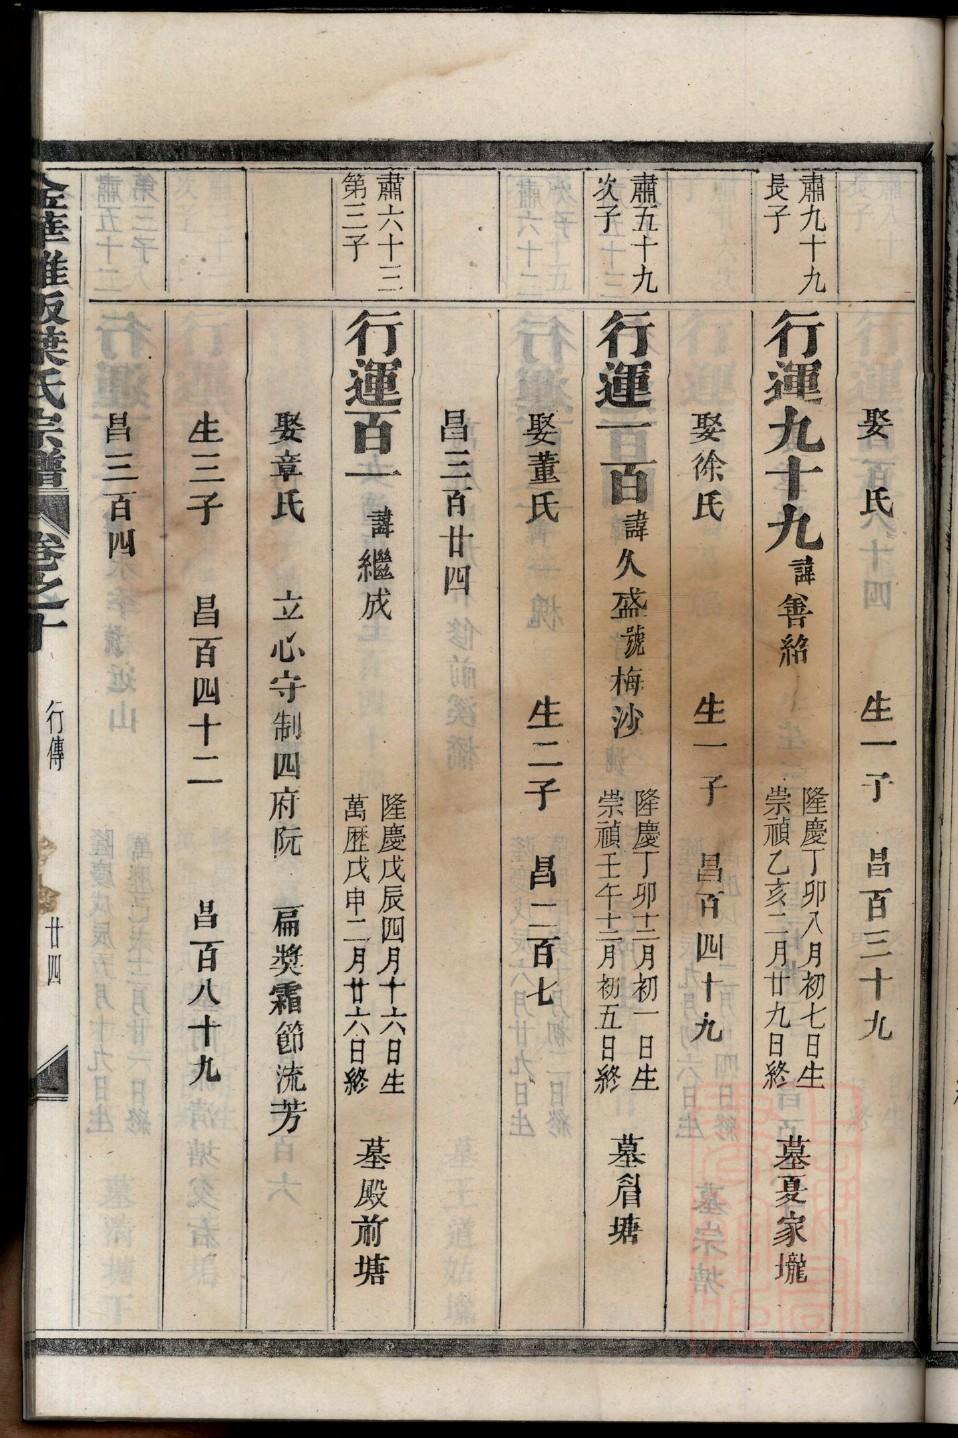 娶　氏　生一子　昌百三十九
肅九十九
長子
行運九十九　諱善紹
隆慶丁卯八月初七日生
崇禎乙亥二月廿九日終
墓夏家壠
娶徐氏　生一子　昌百四十九
肅五十九
次子
行運一百　諱久盛號梅沙
隆慶丁卯十二月初一日生
崇禎壬午十二月初五日終
墓塘
娶董氏　生二子　昌二百七
昌三百廿四
肅六十三
第三子
行運百一　諱繼成
隆慶戊辰四月十六日生
萬歷戊申二月廿六日終
墓殿前塘
娶章氏　立心守制四府阮　扁獎霜節流芳
生三子　昌百四十二　昌百八十九
昌三百四
金華　葉氏宗譜　卷之十　行傳　廿四